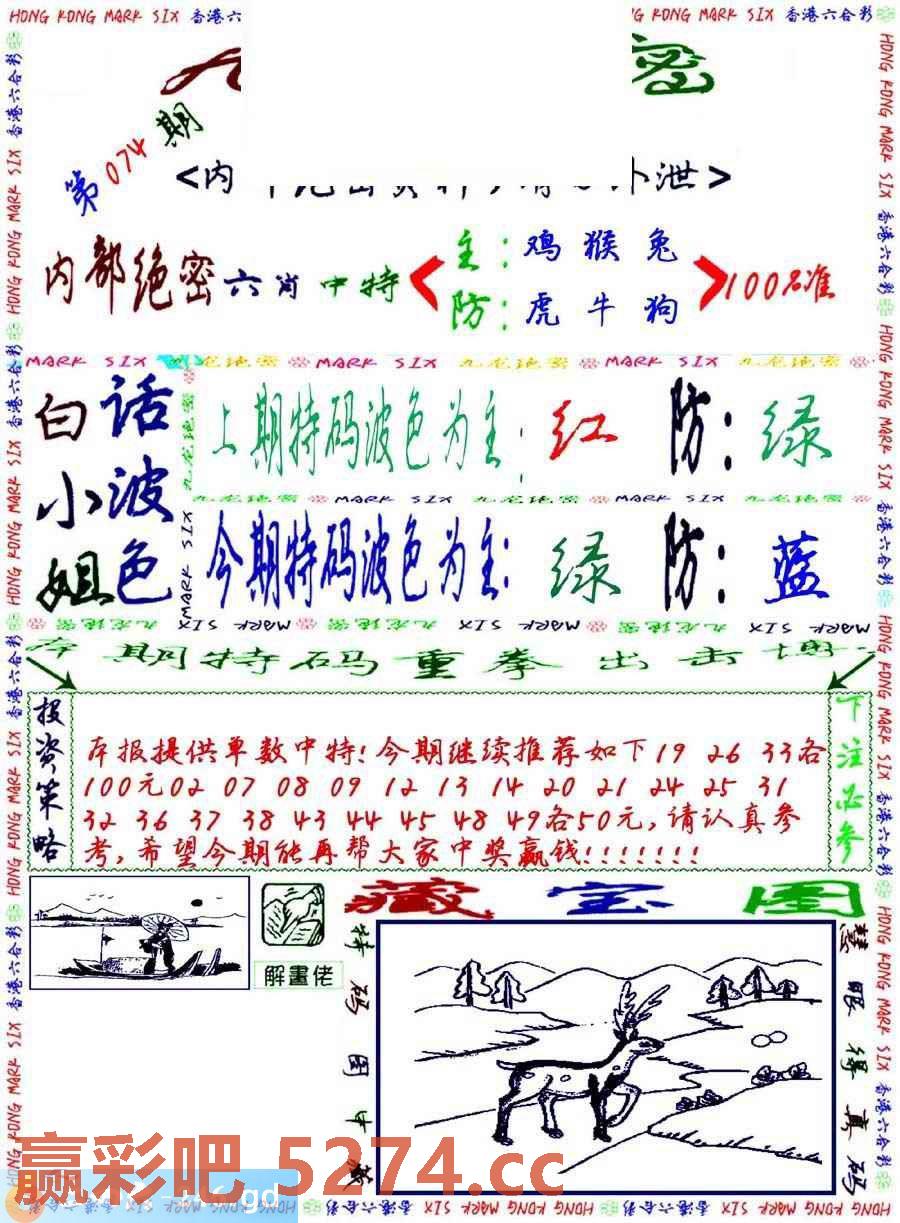 HONG KONG MARK SIX 香港六合彩
KONG MARK SIX 香港六合彩
密
第074期
<内
外泄>
内部绝密六肖中特
主:鸡猴兔
防:虎牛狗
100%准
MARK SIX 九龙绝密 MARK SIX 九龙绝密 MARK SIX 九龙绝密
白话小波姐色
上期特码波色为主:红 防:绿
九龙绝密 MARK SIX 九龙绝密 MARK SIX
今期特码波色为主:绿 防:蓝
九龙绝密 MARK SIX 九龙绝密 MARK SIX
期特码重拳出击
投资策略
本报提供单数中特!今期继续推荐如下19 26 33各
100元02 07 08 09 12 13 14 20 21 24 25 31
32 36 37 38 43 44 45 48 49各50元,请认真参
考,希望今期能再帮大家中奖赢钱!!!!!!!
下注必参
藏宝图
解畫佬
特码图中藏
慧眼得真码
赢彩吧 5274.cc
HONG KONG MARK SIX 香港六合彩